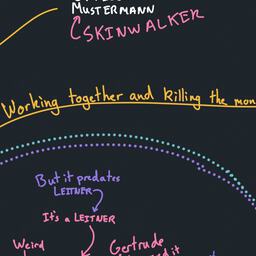 MUSTERMANN
SKINWALKER
Working together and killing the mon
But it predates
LEITNER
It's a LEITNER
Weird
Gertrude